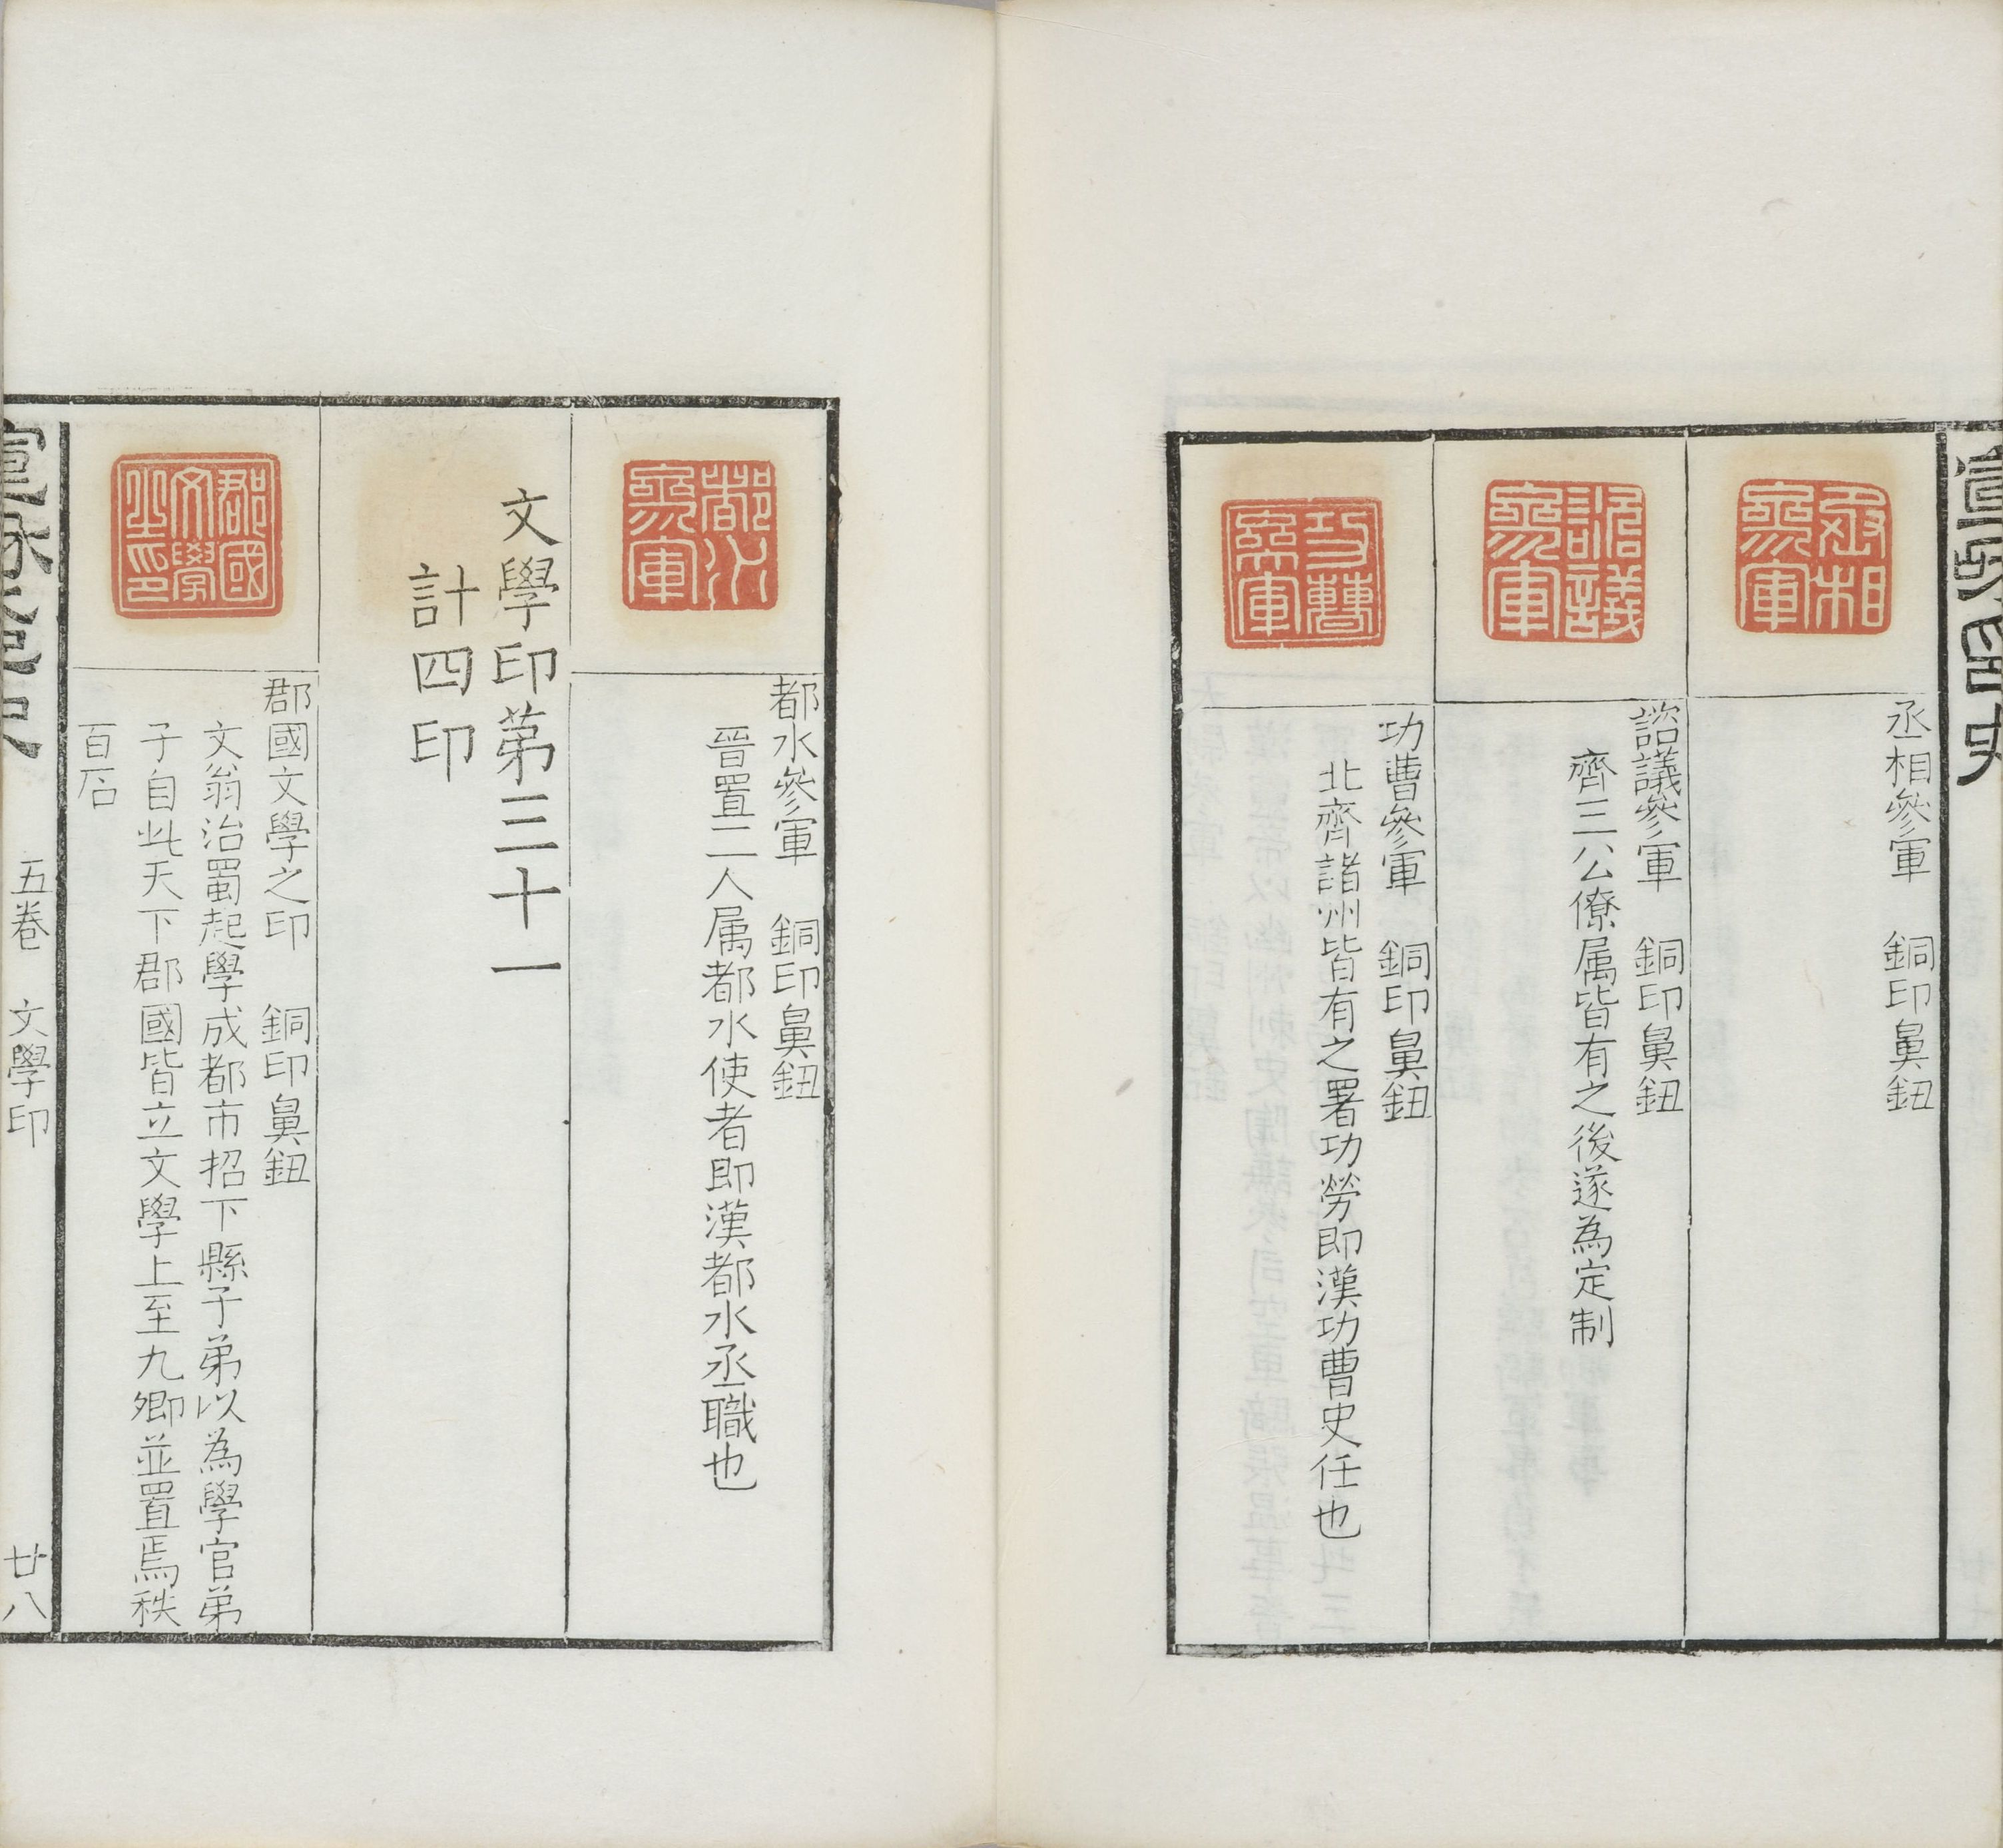 宣和印史
丞相參軍
丞相參軍　銅印鼻鈕
諮議參軍
諮議參軍　銅印鼻鈕
齊三公僚属皆有之後遂為定制
功曹參軍
功曹參軍　銅印鼻鈕
北齊諸州皆有之署功勞即漢功曹史任也
都水參軍
都水參軍　銅印鼻鈕
晉置二人属都水使者即漢都水丞職也
文學印第三十一
計四印
郡國文學之印
郡國文學之印　銅印鼻鈕
文翁治蜀起學成都市招下縣子弟以為學官弟
子自此天下郡國皆立文學上至九卿並置焉秩
百石
五卷　文學印　廿八